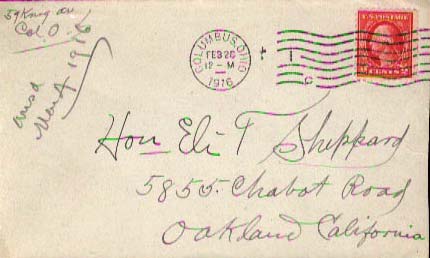 59 King av
Col. O.
ansd
1916
COLUMBUS, OHIO
FEB 26
12-M
1916
U.S. POSTAGE
2 CENTS 2
Hon Eli T Sheppard
5855. Chabot Road
Oakland California